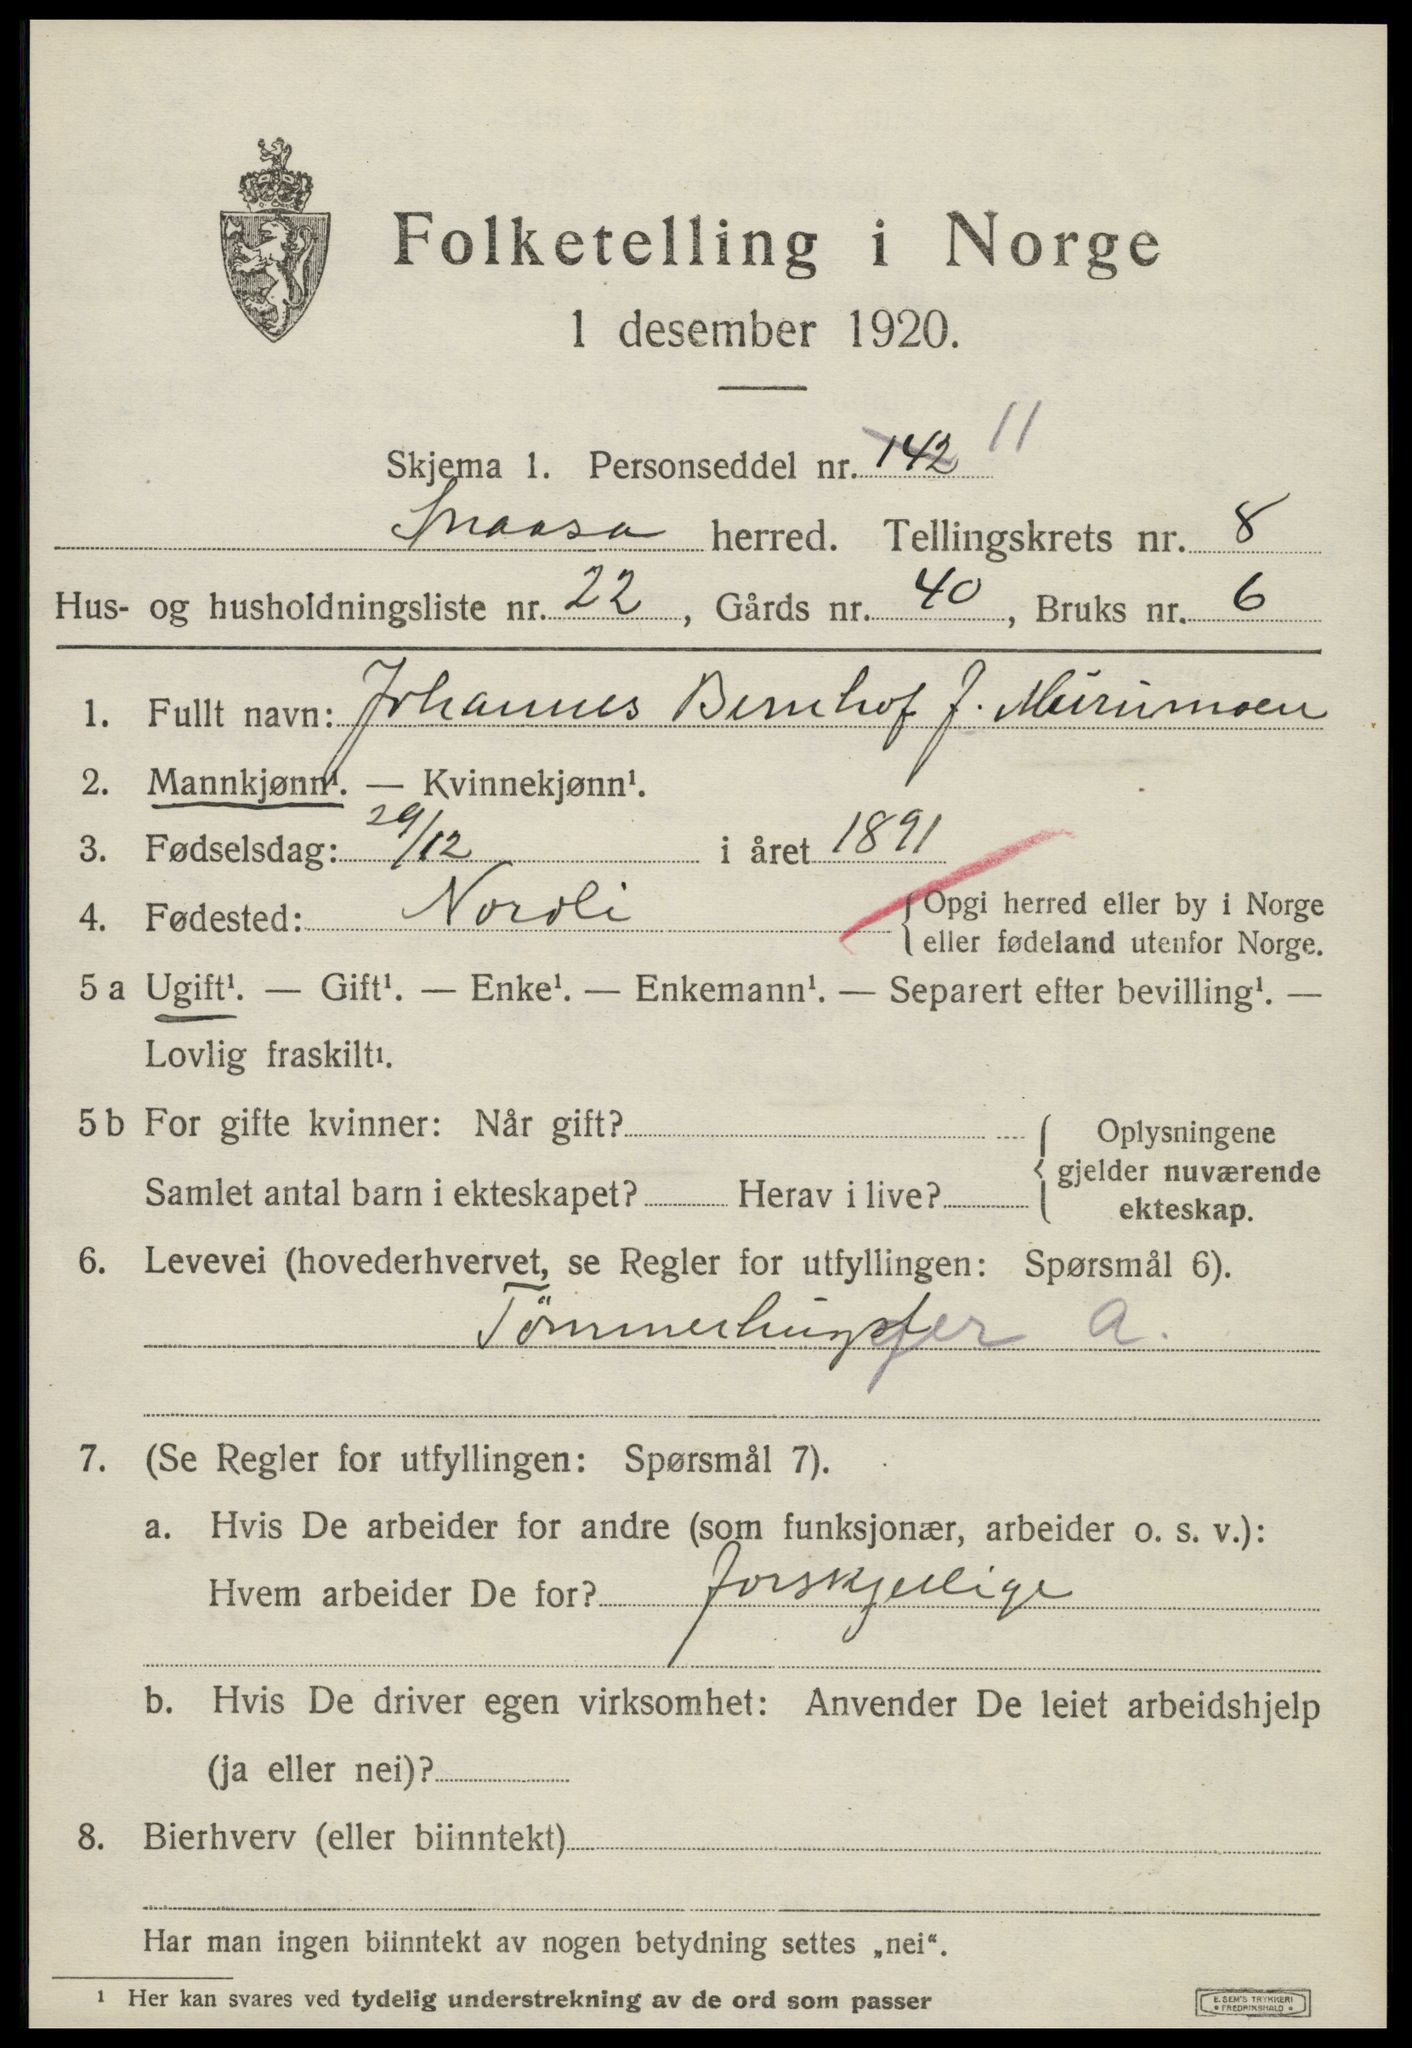 Folketelling i Norge
1 desember 1920.
Skjema 1. Personseddel nr. 142 11
Snaasa herred. Tellingskrets nr. 8
Hus- og husholdningsliste nr. 22, Gårds nr. 40, Bruks nr. 6
1. Fullt navn: Johannes Bernhof J. Murumoen
2. Mannkjønn¹. — Kvinnekjønn¹.
3. Fødselsdag: 29/12 i året 1891
4. Fødested: Nordli { Opgi herred eller by i Norge
eller fødeland utenfor Norge.
5 a Ugift¹. — Gift¹. — Enke¹. — Enkemann¹. — Separert efter bevilling¹. —
Lovlig fraskilt¹.
5 b For gifte kvinner: Når gift? { Oplysningene
gjelder nuværende
Samlet antal barn i ekteskapet? Herav i live?
ekteskap.
6. Levevei (hovederhvervet, se Regler for utfyllingen: Spørsmål 6).
Tömmerhugger a.
7. (Se Regler for utfyllingen: Spørsmål 7).
a. Hvis De arbeider for andre (som funksjonær, arbeider o. s. v.):
Hvem arbeider De for? forskjellige
b. Hvis De driver egen virksomhet: Anvender De leiet arbeidshjelp
(ja eller nei)?
8. Bierhverv (eller biinntekt)
Har man ingen biinntekt av nogen betydning settes „nei“.
¹ Her kan svares ved tydelig understrekning av de ord som passer
E. SEM'S TRYKKERI
FREDRIKSHALD